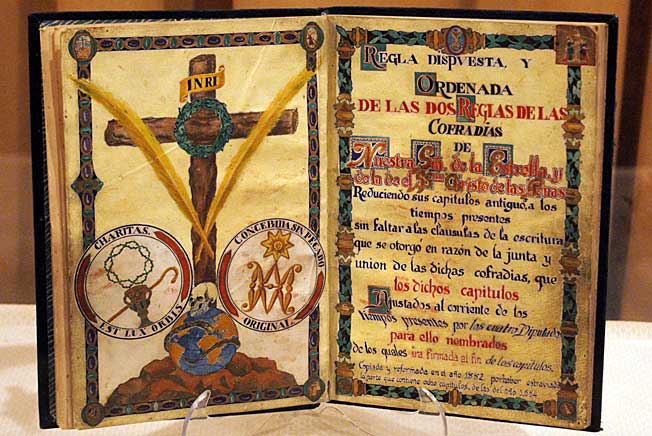 INRI
CHARITAS.
EST LUX ORBIS
CONCEBIDA SIN PECADO
ORIGINAL
REGLA DISPVESTA, Y
ORDENADA
DE LAS DOS REGLAS DE LAS
COFRADÍAS
DE
Nuestra Sra. de la Estrella, y
de la de el Smo. Christo de las Penas
Reduciendo sus capitulos antiguo, a los
tiempos presentes
sin faltar a las clausulas de la escritura
que se otorgó en razón de la junta y
union de las dichas cofradias, que
los dichos capitulos
Ajustados al corriente de los
tiempos presentes por los cuatro Diputados
para ello nombrados
de los quales ira firmada al fin de los capitulos.
Copiada y reformada en el año 1882 por haber estraviado
la parte que contiene ocho capitulos, de las del año 1644